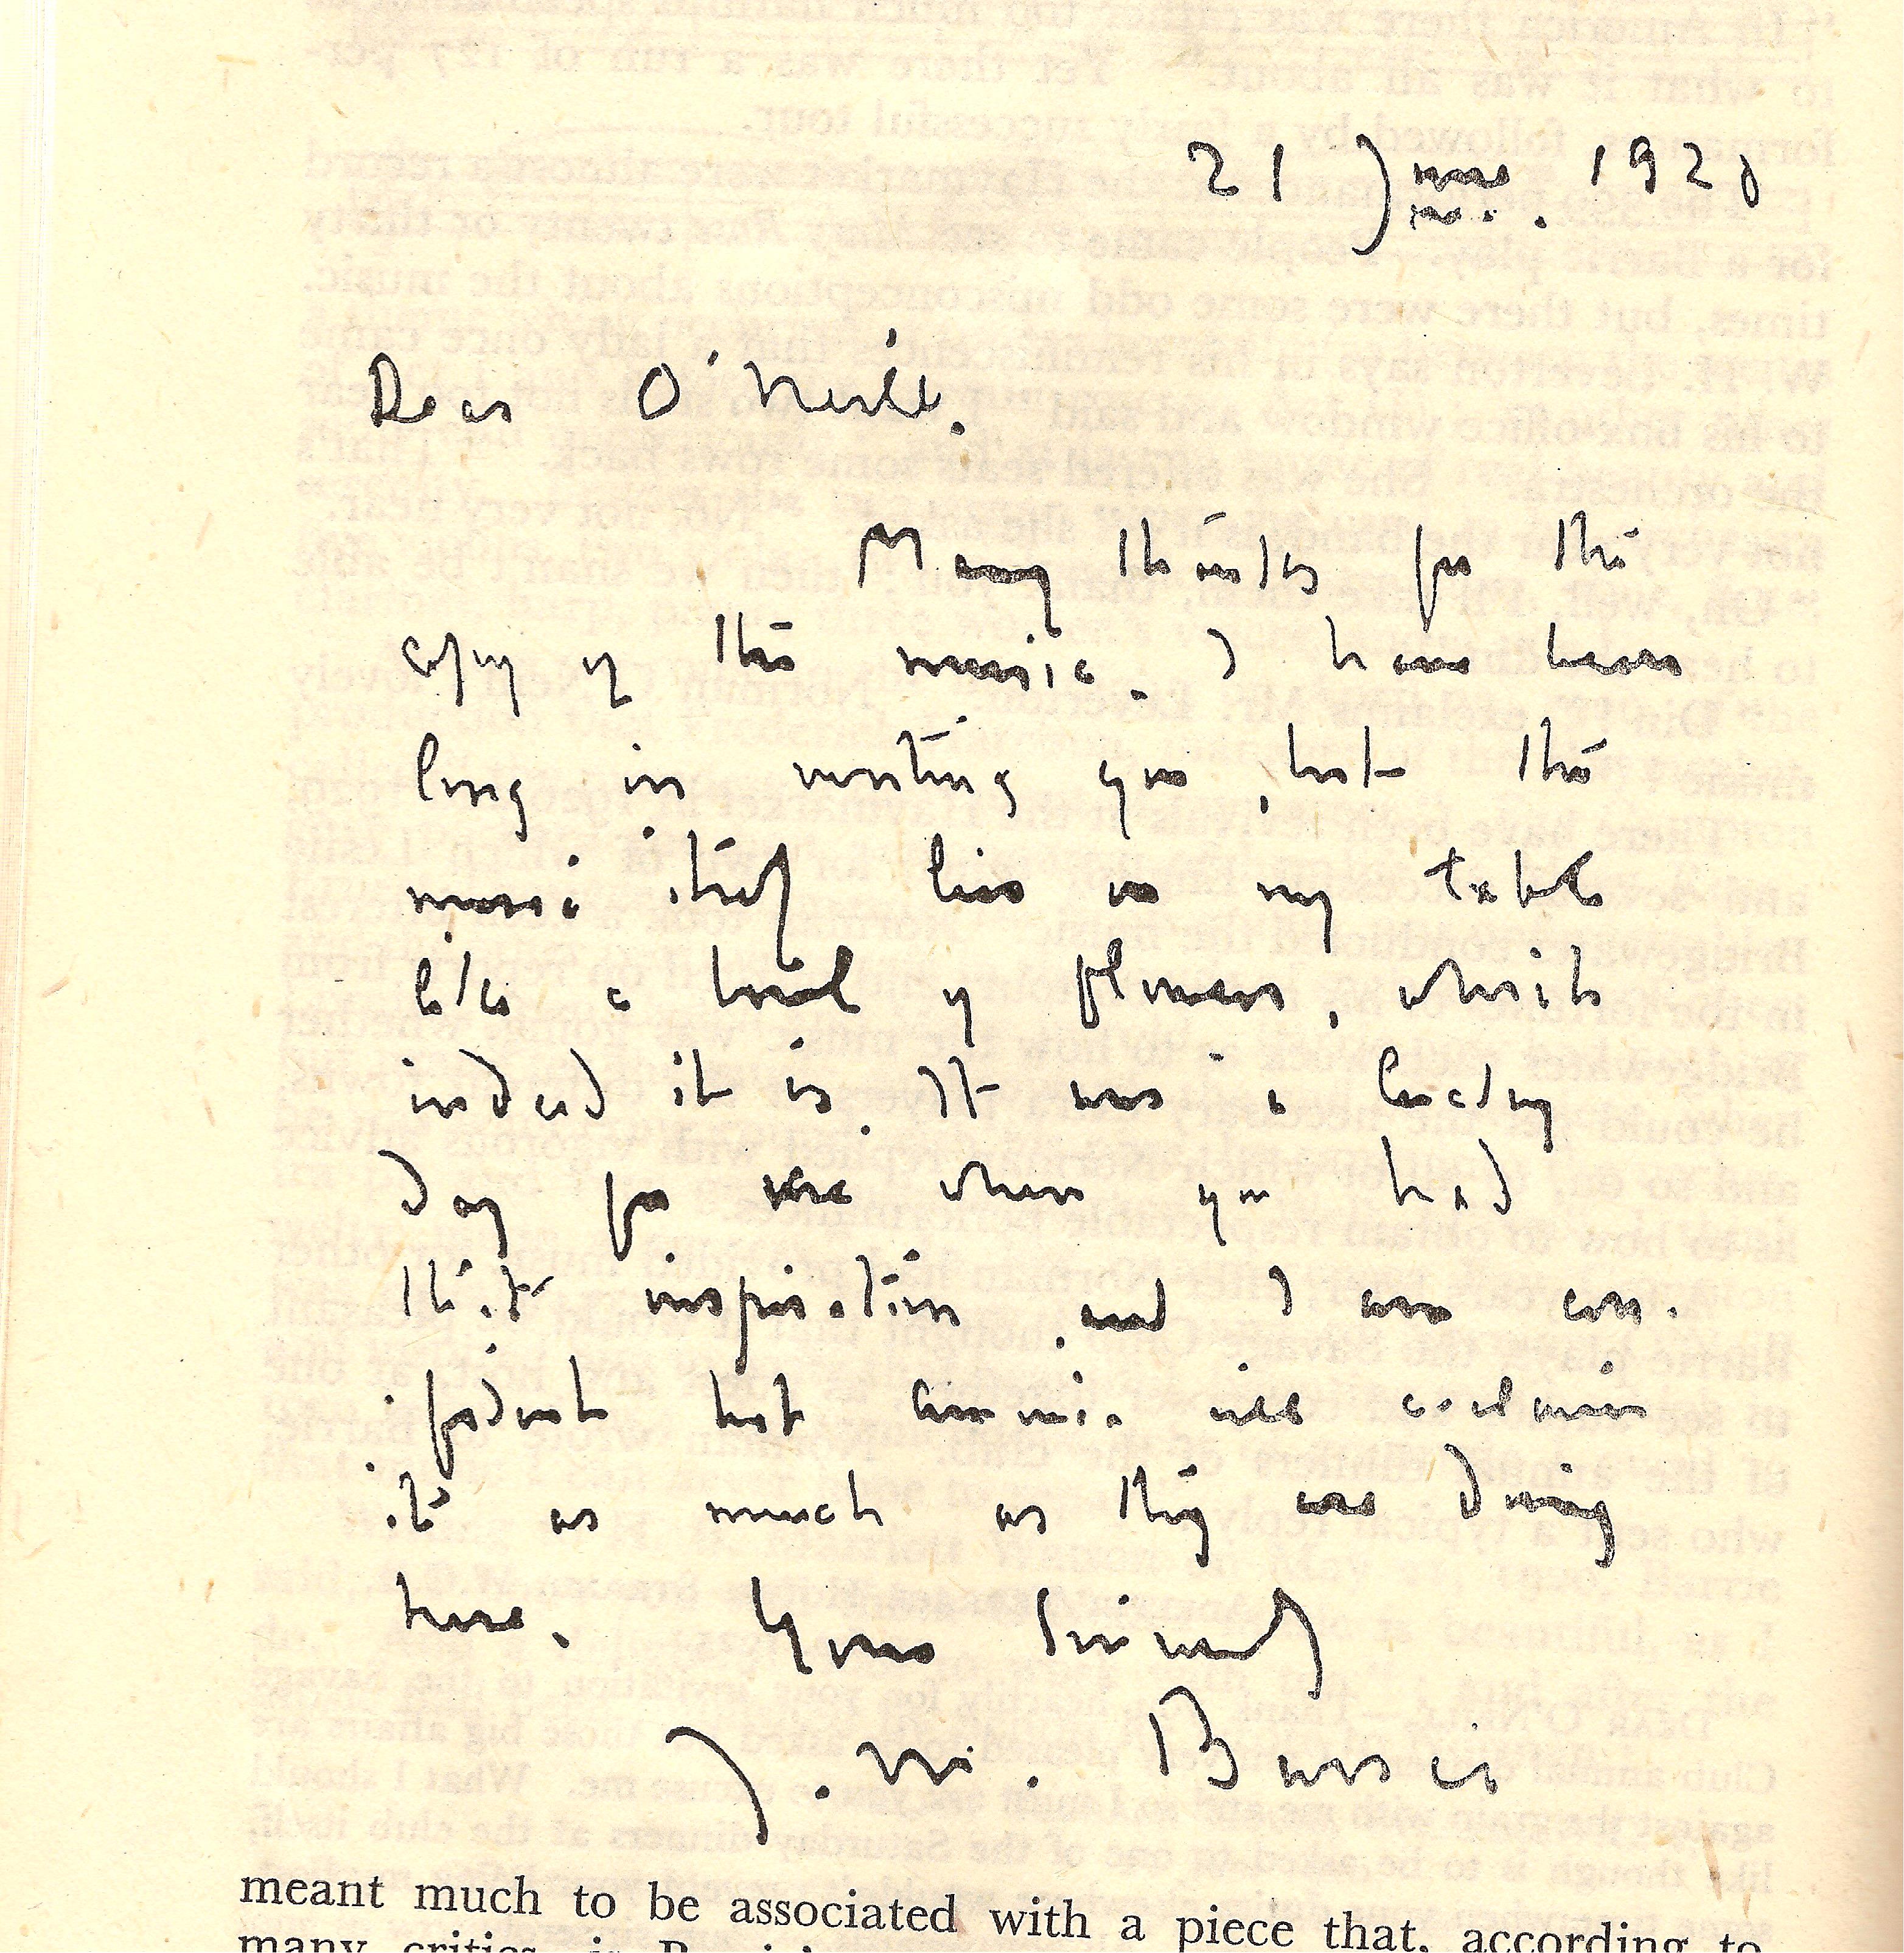 21 June. 1920
Dear O'Neill.
Many thanks for the
copy of the music. I have been
long in writing you, but the
music itself lies on my table
like a bowl of flowers, which
indeed it is. It was a lucky
day for me when you had
that inspiration, and I am con-
fident that America will acclaim
it as much as they are doing
here. Yours Sincerely
J. M. Barrie
meant much to be associated with a piece that, according to
many critics, is